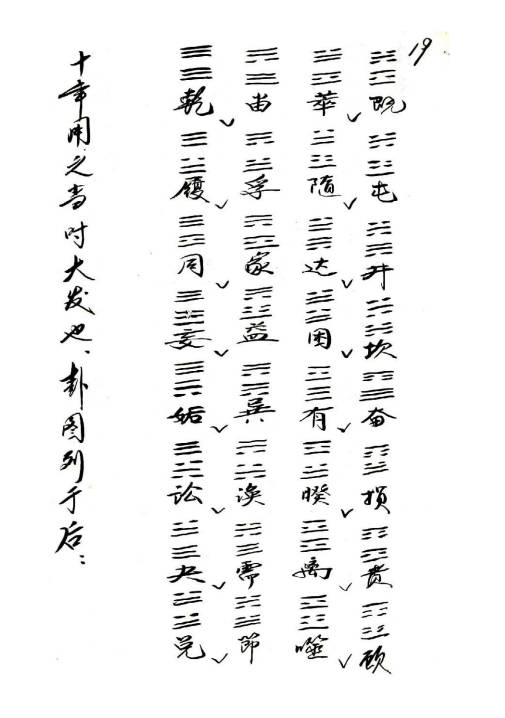 19
十年用之当时大发也、卦图列于后：
乾履同妄姤讼夬兑
畜孚家益巽涣需節
革随过困有睽离噬
既屯井坎畜损贲颐